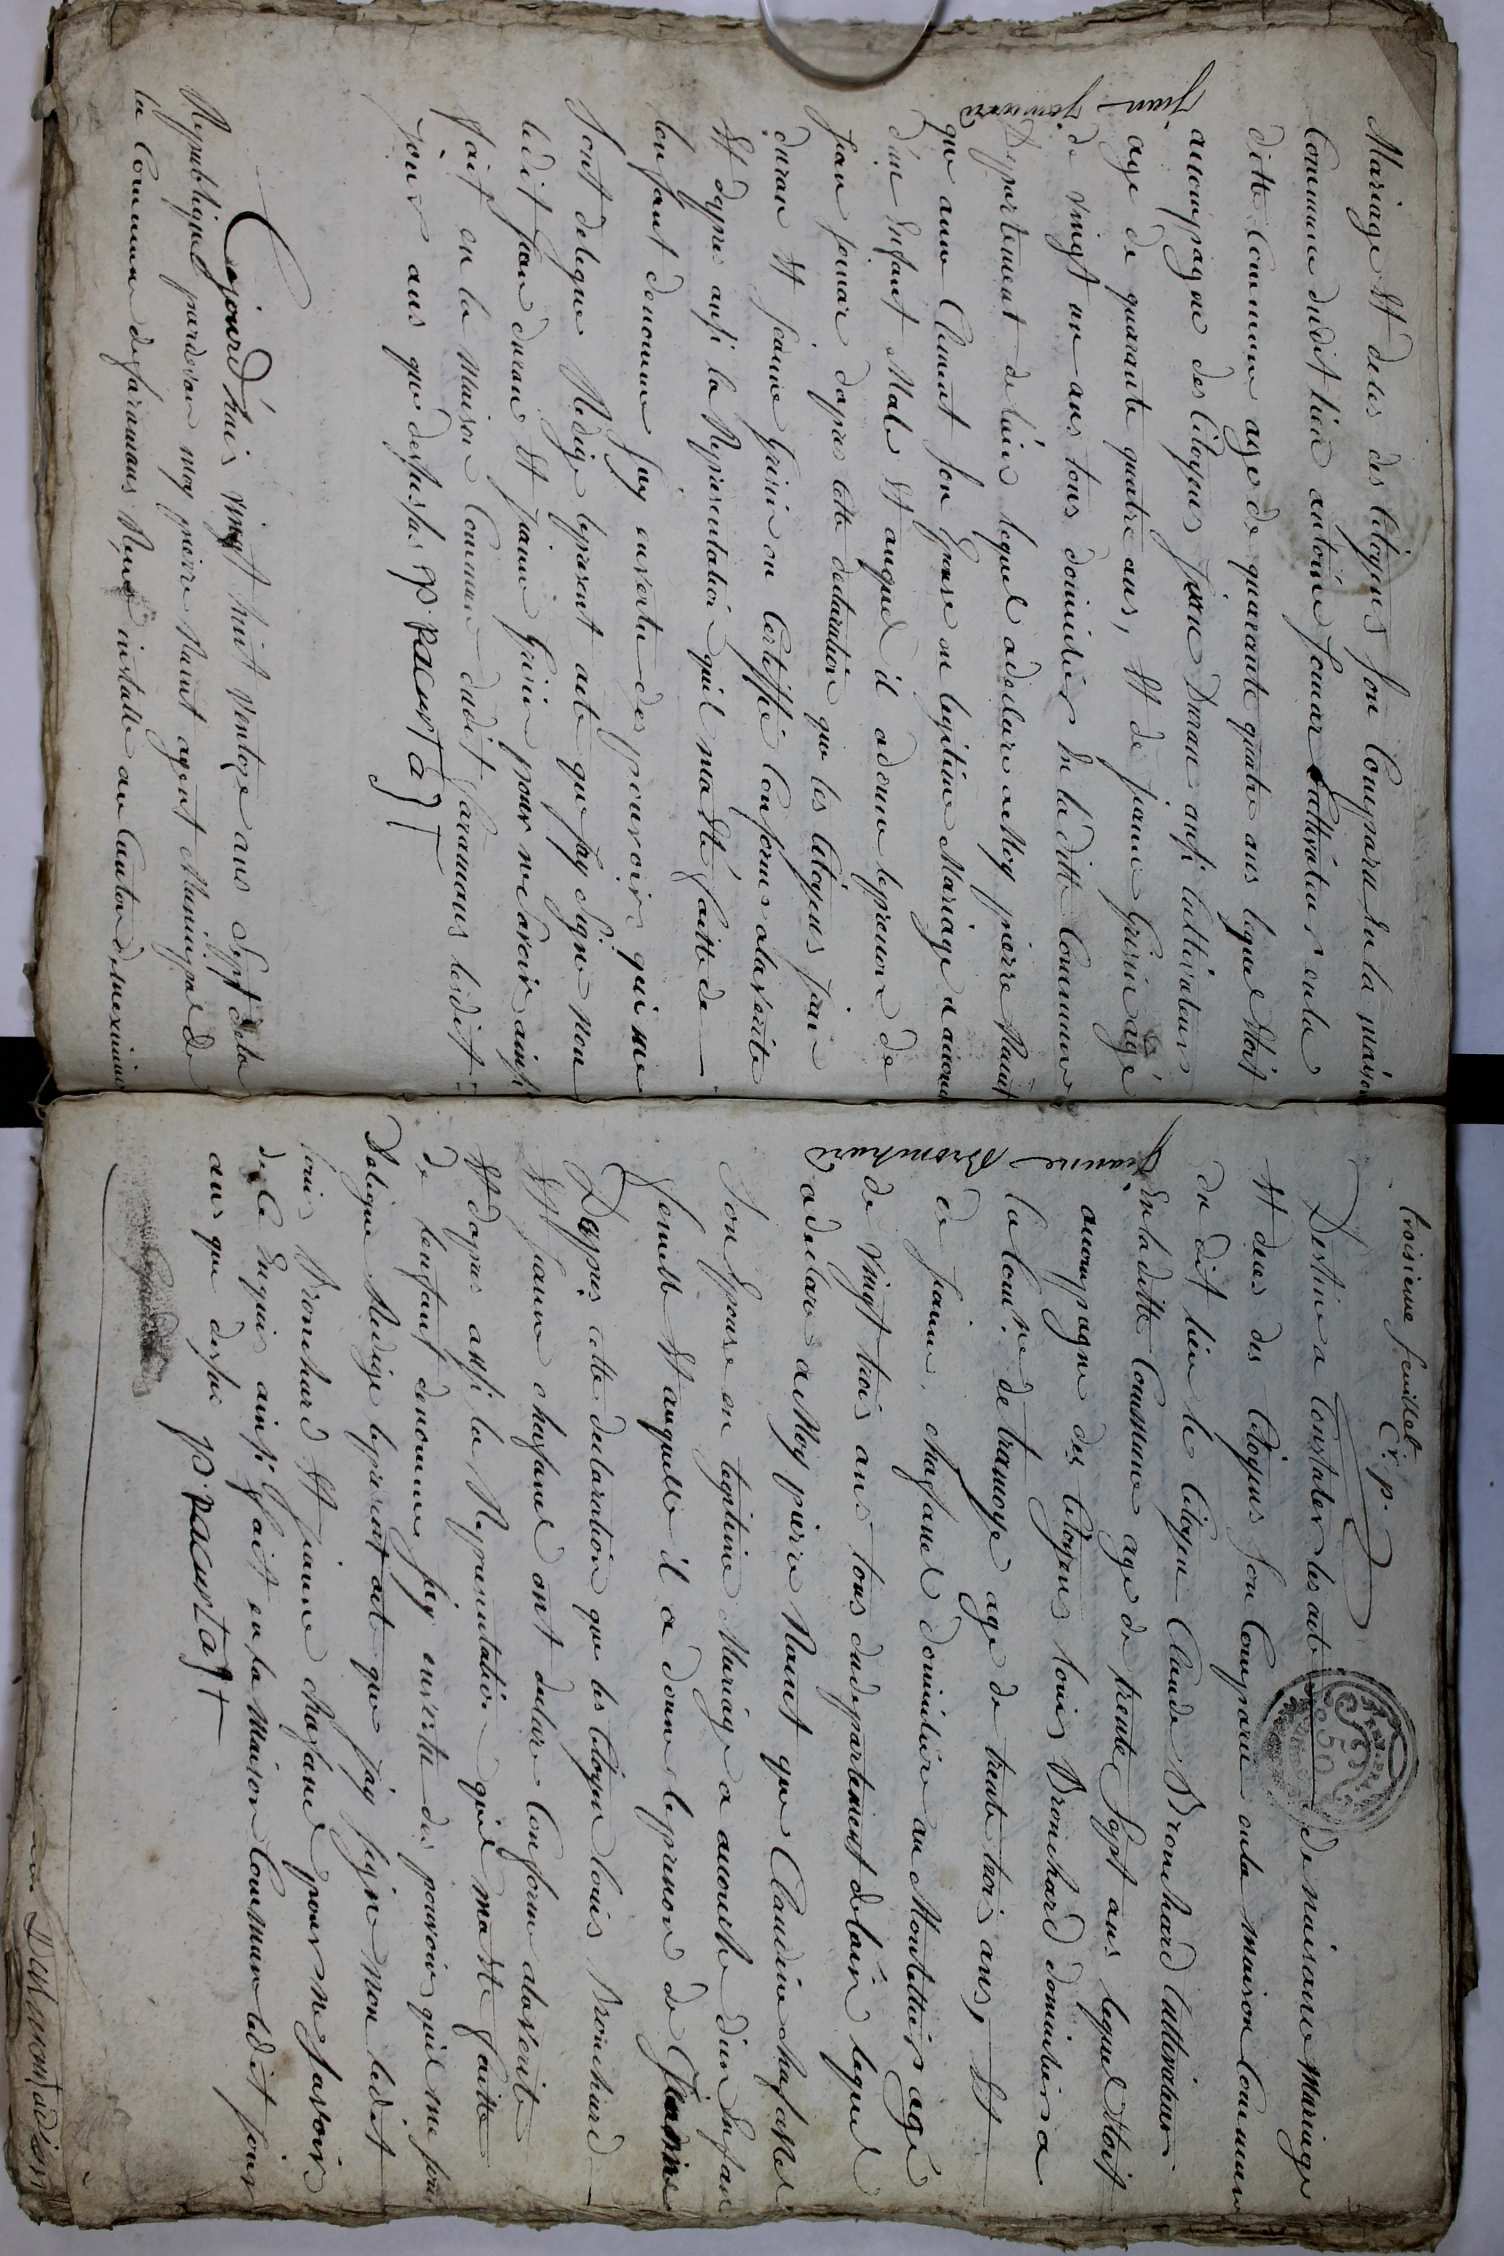 Mariage et deces des Citoyens son Comparu En la maison
Commune dudit lieu antoine Jomar Cultivateur en la
ditte Commune age de quarante quatre ans lequel Etoit
accompagne des Citoyens Jean Duran aussi Cultivateur
age de quarante quatre ans, Et de Jeanne Grisin agé
de vingt un ans tous domicilies En la ditte Commune
Jean Jomard
Departement de lain lequel a declare a Moy pierre Nauet
que anne Clement son Epouse en legitime Mariage a accouche
d'un Enfant Male Et auquel il a donne le prenom de
Jean Jomar dapres cette declaration que les Citoyens Jean
duran Et Jeanne Grisin on Certiffié Conforme a la verite
Et dapres aussi la Representation quil ma Eté faitte de
lenfant denomme Jay en vertu des pouvoirs qui me
sont delegue Redige le present acte que Jay Signe non
ledit Jean duran Et Jeanne Grisin pour ne Savoir ainsi
fait en la Maison Commune dudit Saramans lesdit
Jour ans que dessus
Cejourd'huis vingt huit ventose ans Sept de la
Republique pardevan moy pierre Nauet agent Municipal de
la Commune de Saramans Reuni installe au Canton de meximieux
troisieme feuillet
C. p.
Destine a Constater les acte de naisance Mariage
Et deces des Citoyens Son Comparu en la maison Commune
du dit lieu le Citoyen Claude Bronchard Cultivateur
En la ditte Commune age de trente Sept ans lequel Etoit
Jeanne Bronchard
accompagne des Citoyens louis Bronchard domicilier a
la Comne de tramoye age de trente trois ans, Et
de Jeanne chafanel domiciliée au Montellier agé
de vingt trois ans tous du departement de lain lequel
a declare a Moy pierre Nauet que Claudine chafanel
Son Epouse en legitime Mariage a accouche d'un Enfant
femelle Et auquelle il a donne le prenom de Jeanne
Dappres cette declaration que les Citoyen louis Bronchard
Et Jeanne chafanel ont declare Conforme a la verite
Et dapres aussi la Representation quil ma Ete faitte
de lenfant denomme Jay en vertu des pouvoir quil me son
Delegue Redige le present acte que Jay Signe non ledit
louis Bronchard Et Jeanne chafanel pour ne Savoir
de Ce Enquis ainsi fait en la Maison Commune ledit Jour
ans que dessus